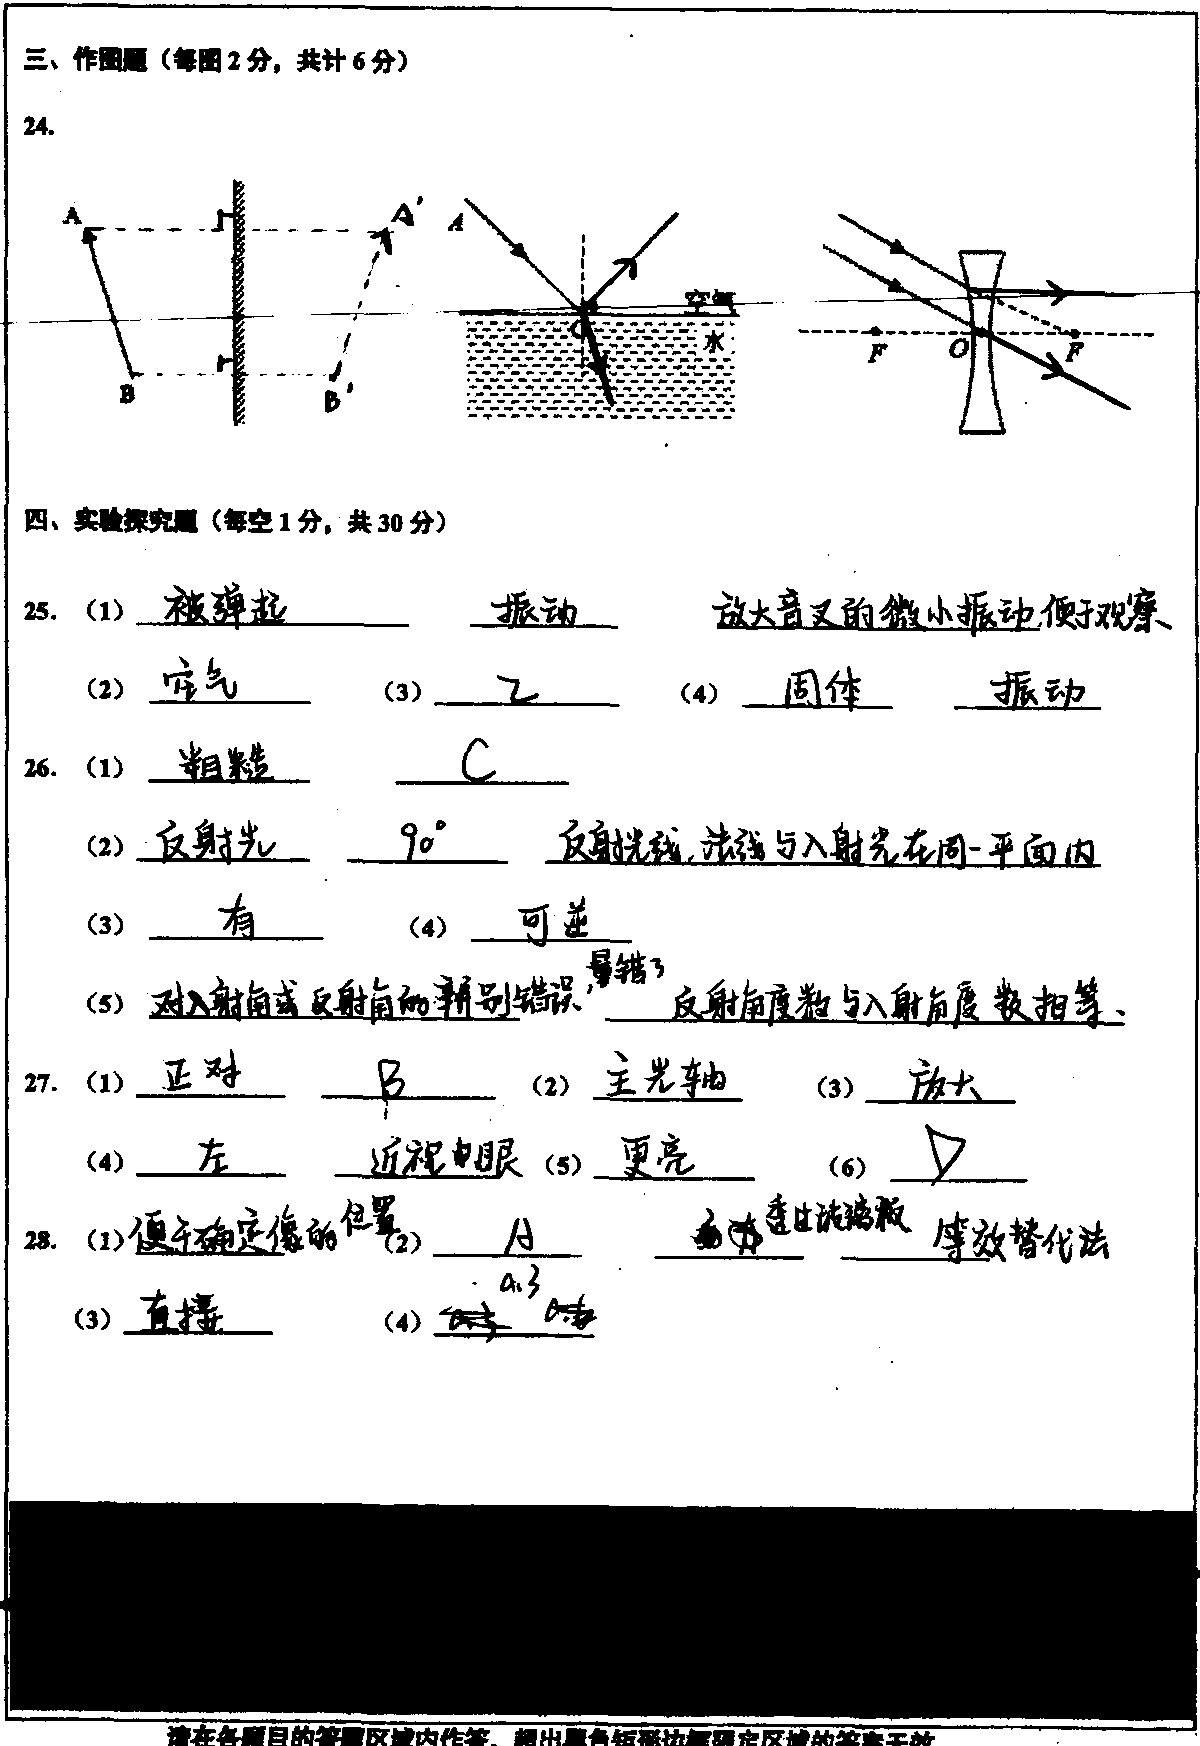 三、作图题（每图2分，共计6分）
24.
A A' A 空气
水
O F O F
B B'
四、实验探究题（每空1分，共30分）
25.（1）被弹起 振动 放大音叉的微小振动,便于观察、
（2）空气 （3）乙 （4）固体 振动
26.（1）粗糙 C
（2）反射光 90° 反射光线、法线与入射光在同一平面内
（3）有 （4）可逆
（5）对入射角或反射角的辨别错误,量错了 反射角度数与入射角度数相等、
27.（1）正对 B （2）主光轴 （3）放大
（4）左 近视眼 （5）更亮 （6）D
28.（1）便于确定像的位置 （2）A 透过玻璃板 等效替代法
（3）直接 （4）0.3
请在各题目的答题区域内作答，超出黑色矩形边框限定区域的答案无效